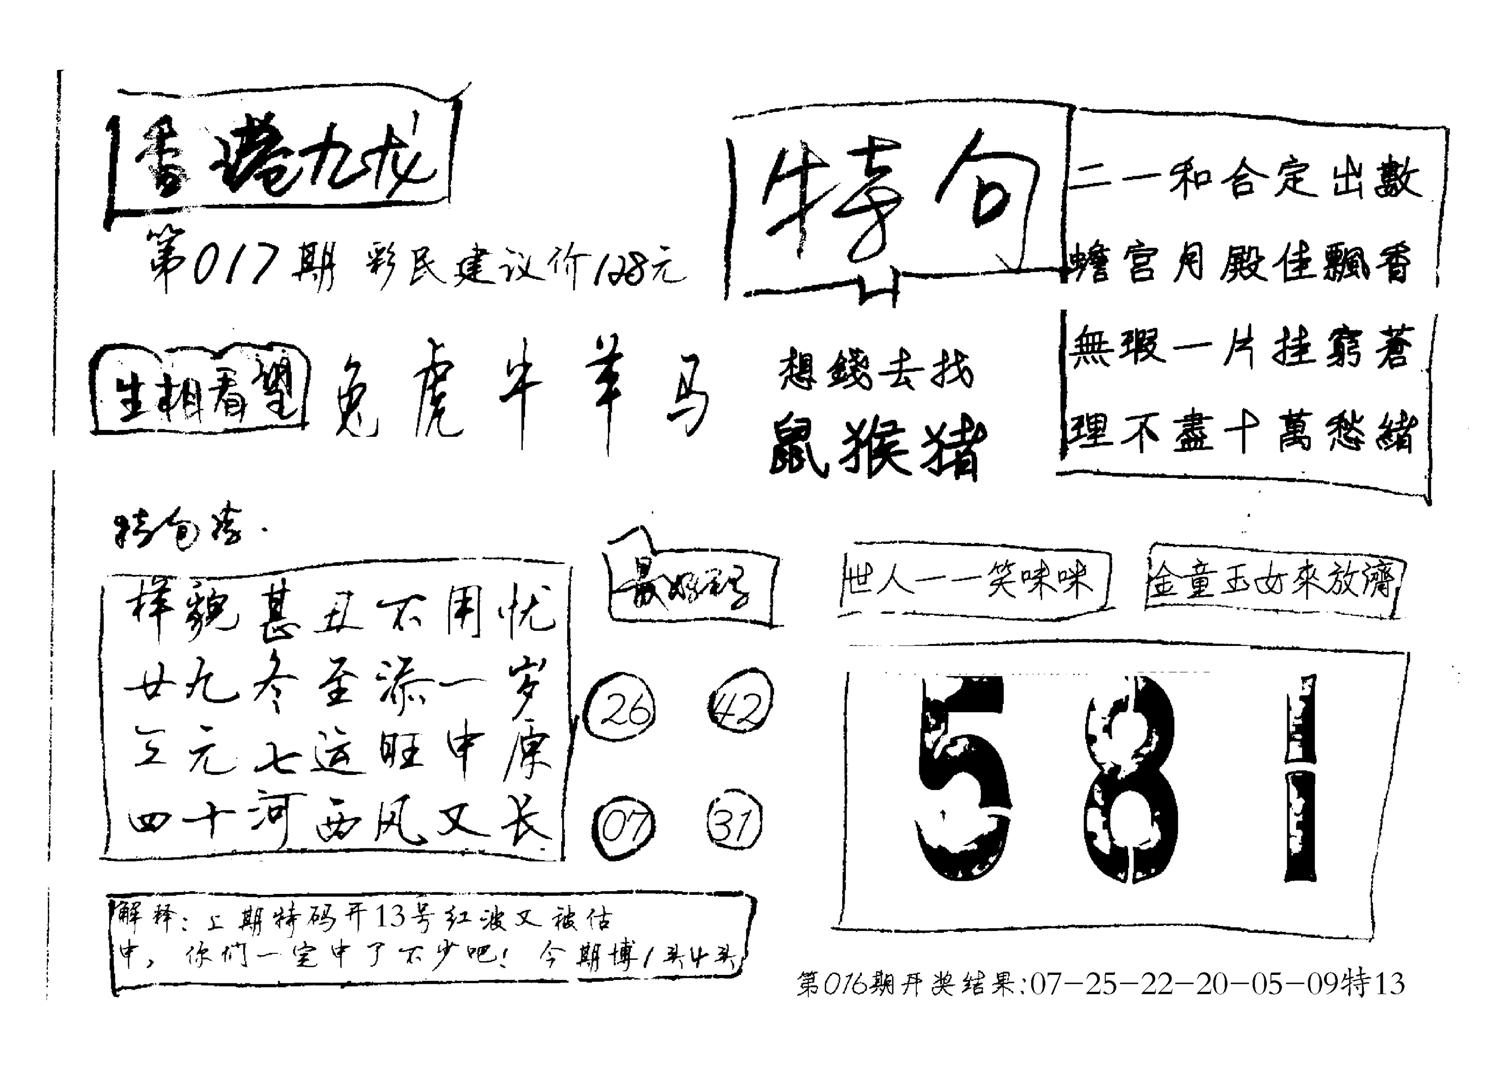 香港九龙
第017期 彩民建议价128元
特句
二一和合定出數
蟾宫月殿佳飄香
無瑕一片挂窮蒼
理不盡十萬愁緒
生相看望
兔虎牛羊马
想錢去找
鼠猴猪
特句诗.
样貌甚丑不用忧
廿九冬至添一岁
三元七运旺中原
四十河西风又长
最好码
26 42
07 31
世人一一笑咪咪
金童玉女來放濟
581
解释:上期特码开13号红波又被估
中,你们一定中了不少吧!今期博1头4头
第016期开奖结果:07-25-22-20-05-09特13